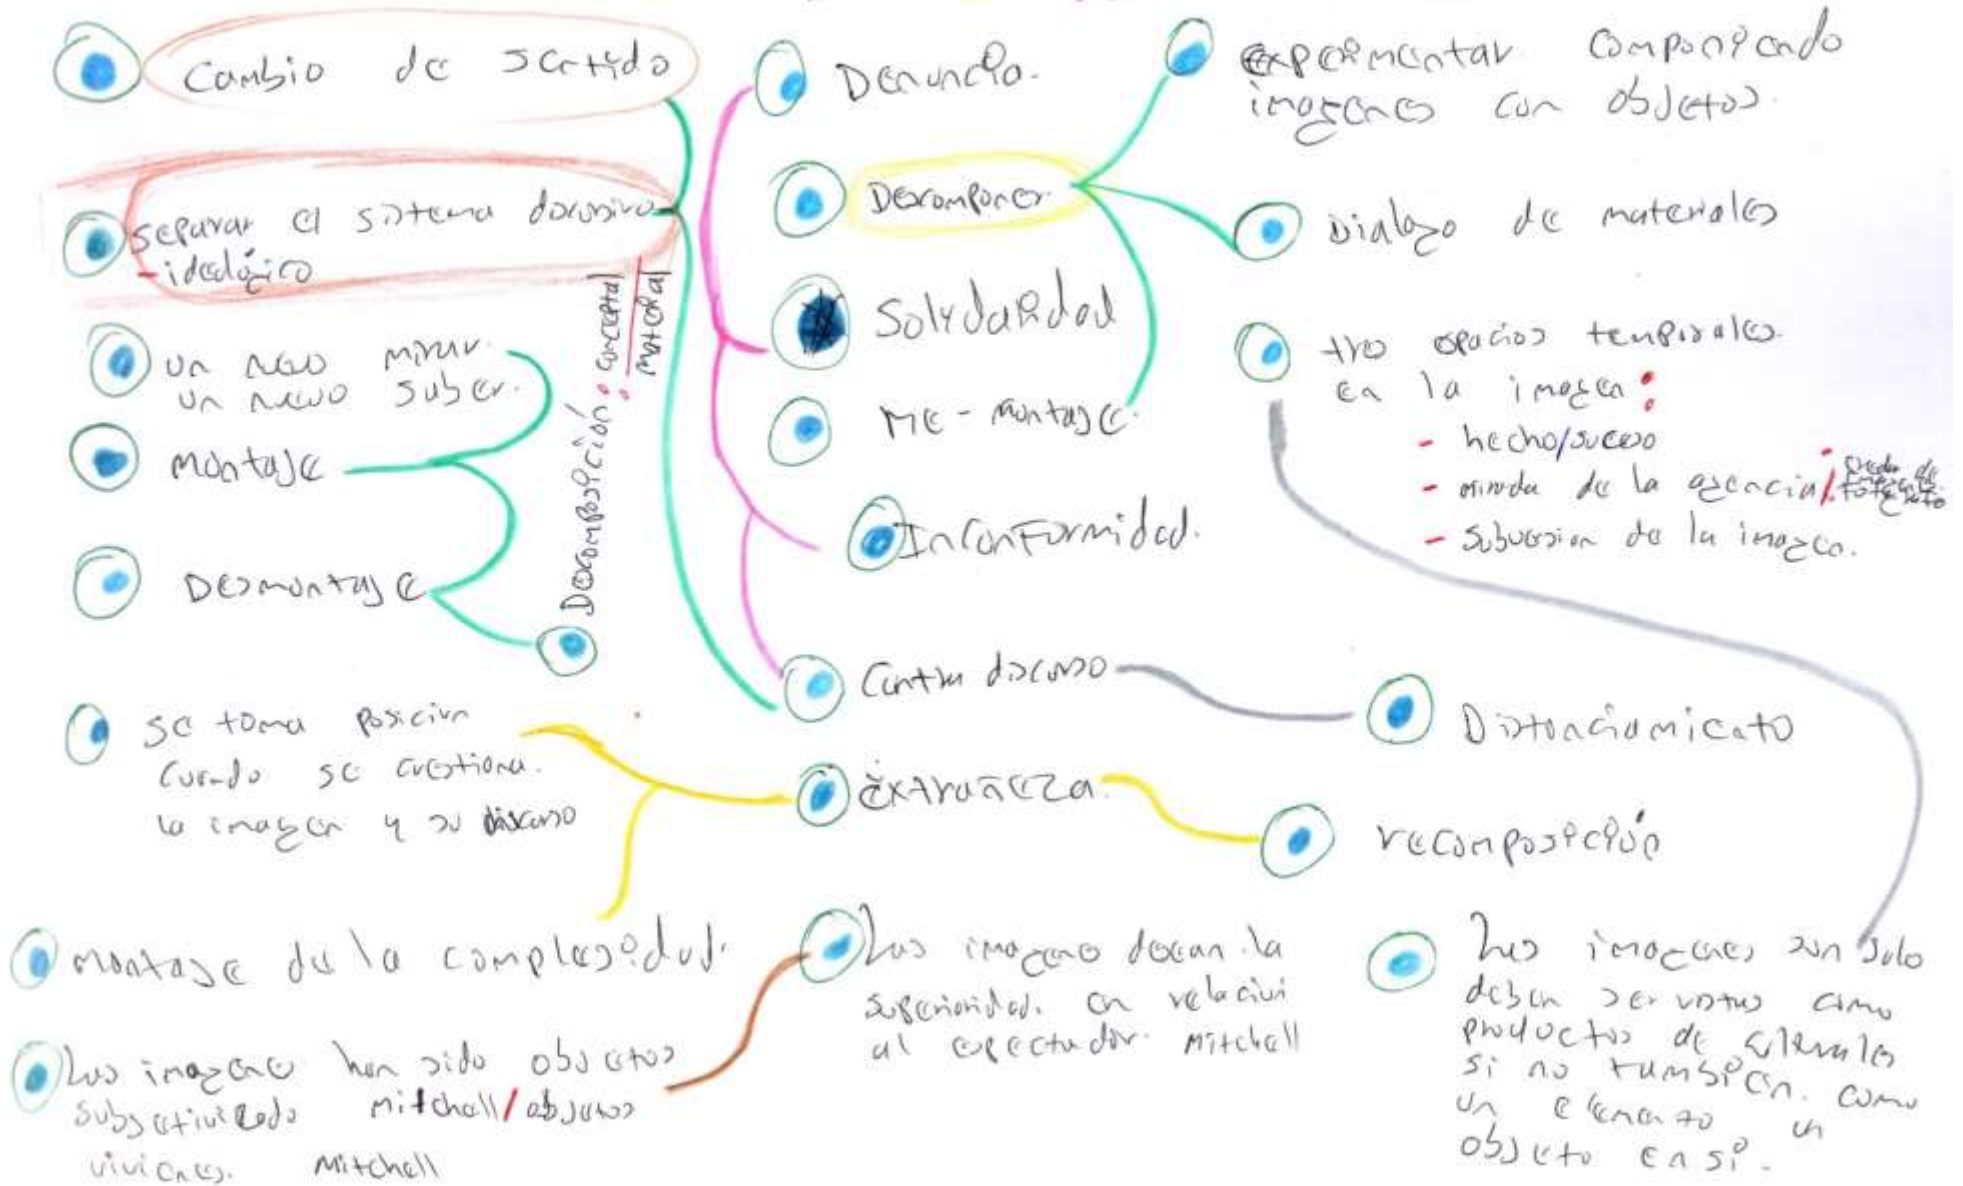 Cambio de sentido
separar el sistema discursivo
- ideológico
un neo mirar.
un nuevo saber.
montaje
Desmontaje
Descomposición: conceptal
material
se toma posición
cuando se cuestiona.
la imagen y su discurso
montaje de la complejidad.
Las imagene han sido objetos
subjetivizado Mitchell/objetos
vivienes. Mitchell
Denuncia.
Descomponer.
Solydaridad
Re-montaje.
Inconformidad.
Contra discurso
Extrañeza.
Las imagene desean la
superioridad. en relación
al espectador. Mitchell
experimentar componiendo
imagenes con objetos.
Dialogo de materiales
tres espacios temporales.
en la imagen:
- hecho/suceso
- mirada de la agencia/
- Subversion de la imagen.
Distanciamiento
recomposición
Las imagenes son solo
deben ser vistas como
productos de
si no tambien. como
un elemento un
objeto en si.